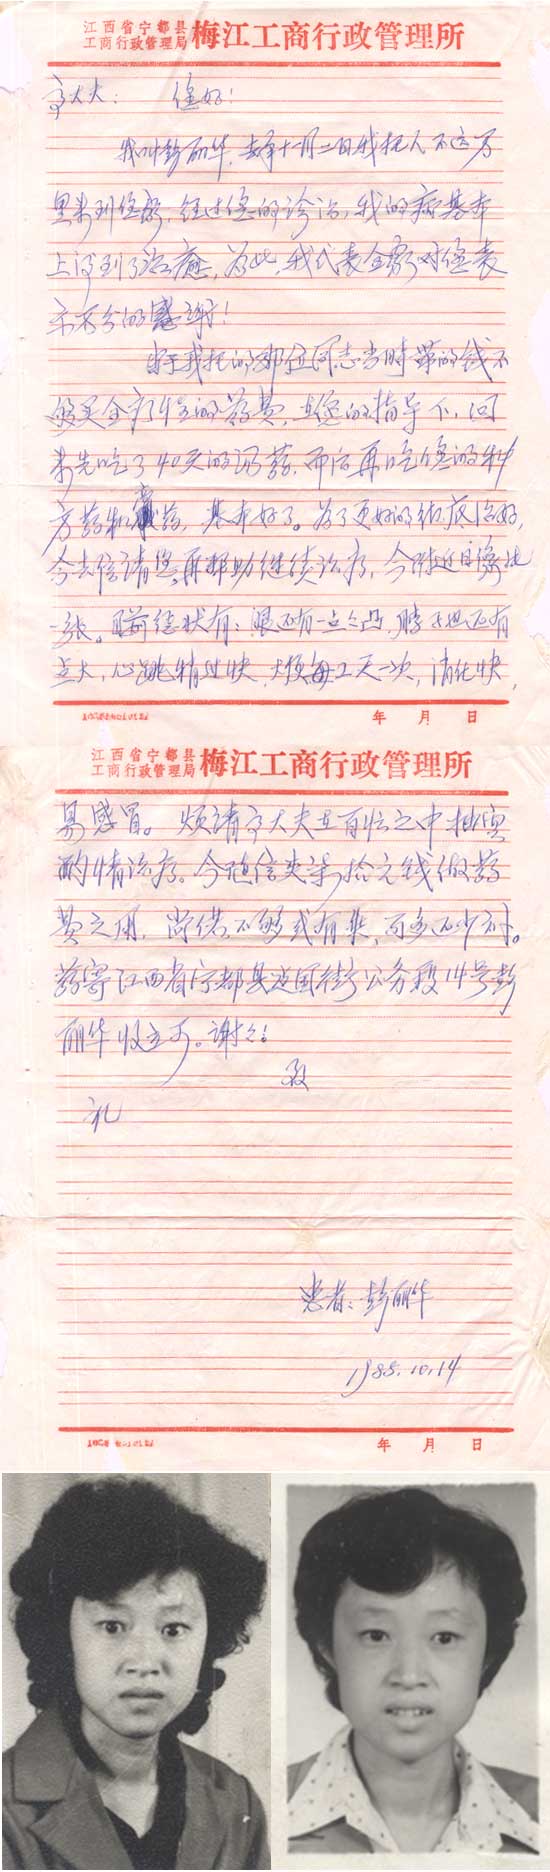 江西省宁都县
工商行政管理局 梅江工商行政管理所
大夫： 您好！
我叫彭丽华，去年十一月二日我托人不远万
里来到您部，经过您的诊治，我的病基本
上得到了治癒，为此，我代表全家对您表
示万分的感谢！
由于我托的那位同志当时带的钱不
够买全疗程的药费，在您的指导下，回
来先吃了40天的汤药，而后再吃您的
方药和药，基本好了。为了更好的彻底治好，
今去信请您再帮助继续治疗，今附近日像片
一张。目前症状有：眼还有一点凸，脖子也还有
点大，心跳稍过快，大便每2天一次，消化快，
年 月 日
江西省宁都县
工商行政管理局 梅江工商行政管理所
易感冒。烦请大夫在百忙之中抽空
酌情治疗。今随信夹寄拾元钱做药
费之用，尚若不够或有乘，再多还少补。
药寄江西省宁都县街公务段14号彭
丽华收立可。谢谢！
致
礼
患者：彭丽华
1988.10.14
年 月 日